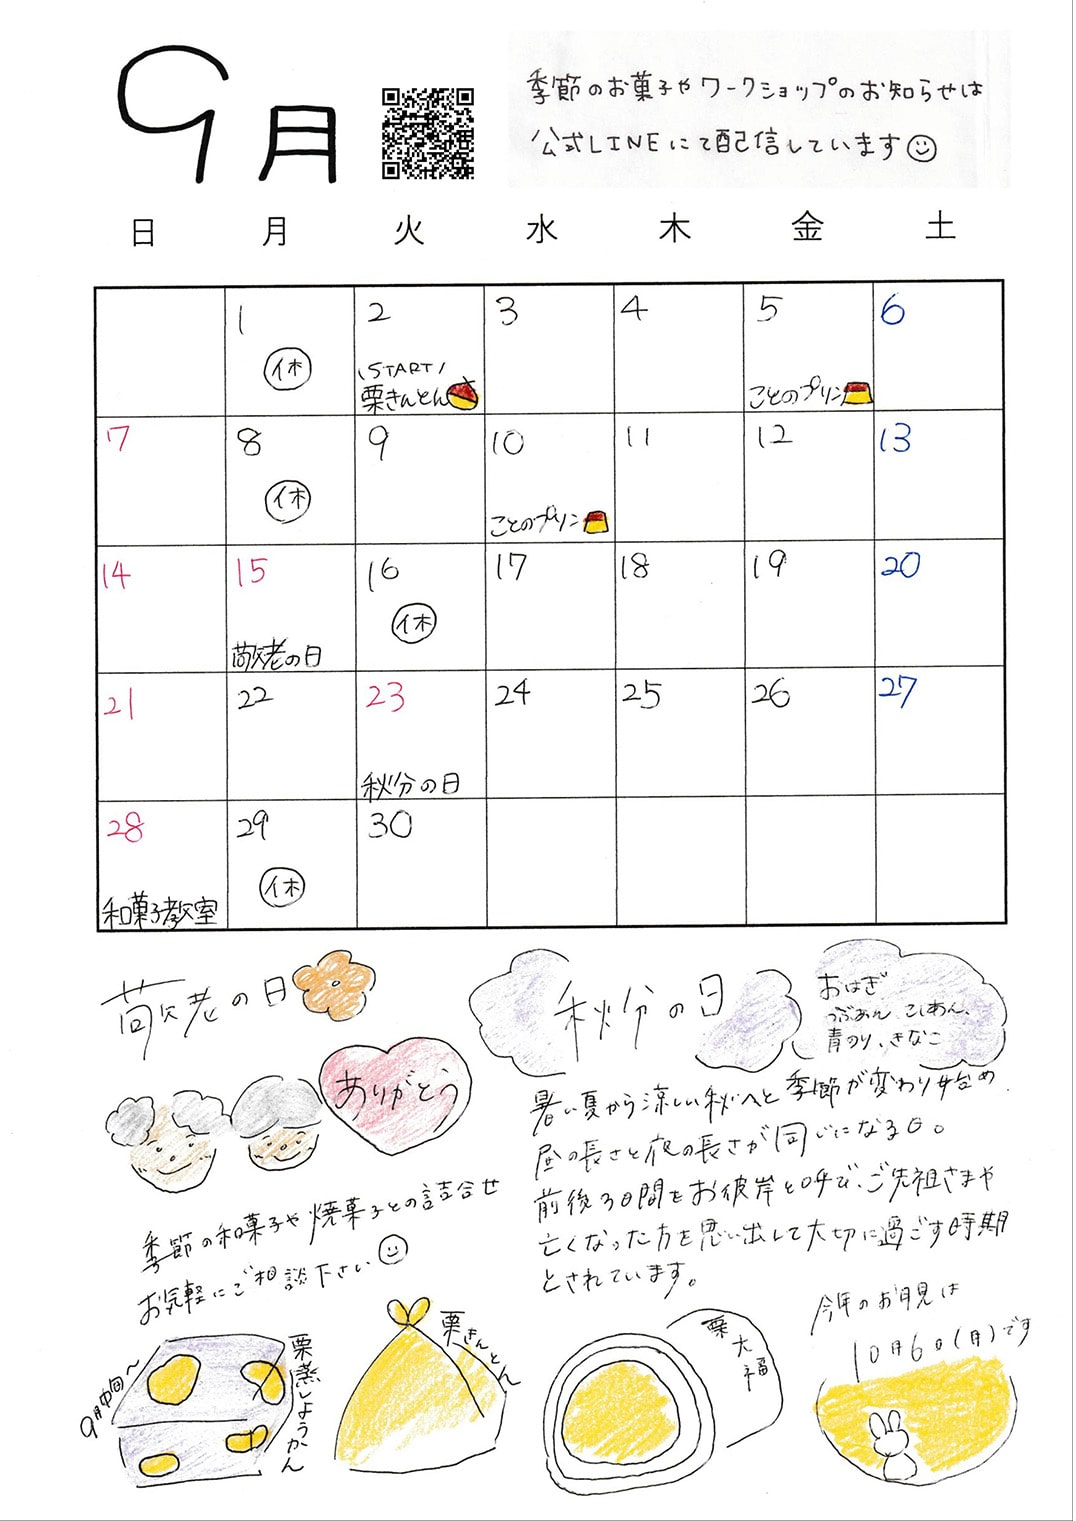 9月
季節のお菓子やワークショップのお知らせは
公式LINEにて配信しています
日 月 火 水 木 金 土
1 2 3 4 5 6
休
\START/
栗きんとん
ことのプリン
7 8 9 10 11 12 13
休
ことのプリン
14 15 16 17 18 19 20
休
敬老の日
21 22 23 24 25 26 27
秋分の日
28 29 30
休
和菓子教室
敬老の日
ありがとう
季節の和菓子や焼菓子との詰合せ
お気軽にご相談下さい
秋分の日
おはぎ
つぶあん、こしあん、
青のり、きなこ
暑い夏から涼しい秋へと季節が変わり始め、
昼の長さと夜の長さが同じになる日。
前後3日間をお彼岸と呼び、ご先祖さまや
亡くなった方を思い出して大切に過ごす時期
とされています。
9月中旬〜
栗蒸しようかん
栗きんとん
栗大福
今年のお月見は
10月6日(月)です